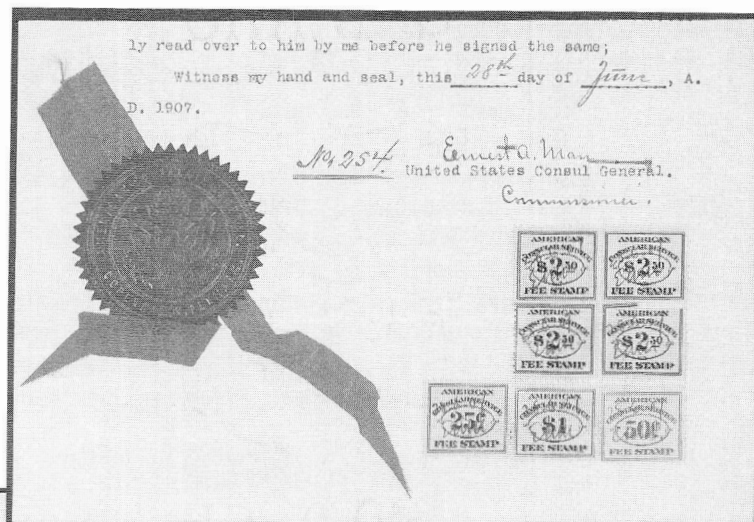 ly read over to him by me before he signed the same;
Witness my hand and seal, this 28th day of June, A.
D. 1907.
No. 254. Ernest A. Man
United States Consul General.
Commissioner.
AMERICAN CONSULAR SERVICE $2.50 FEE STAMP
AMERICAN CONSULAR SERVICE $2.50 FEE STAMP
AMERICAN CONSULAR SERVICE $2.50 FEE STAMP
AMERICAN CONSULAR SERVICE $2.50 FEE STAMP
AMERICAN CONSULAR SERVICE 25¢ FEE STAMP
AMERICAN CONSULAR SERVICE $1 FEE STAMP
AMERICAN CONSULAR SERVICE 50¢ FEE STAMP